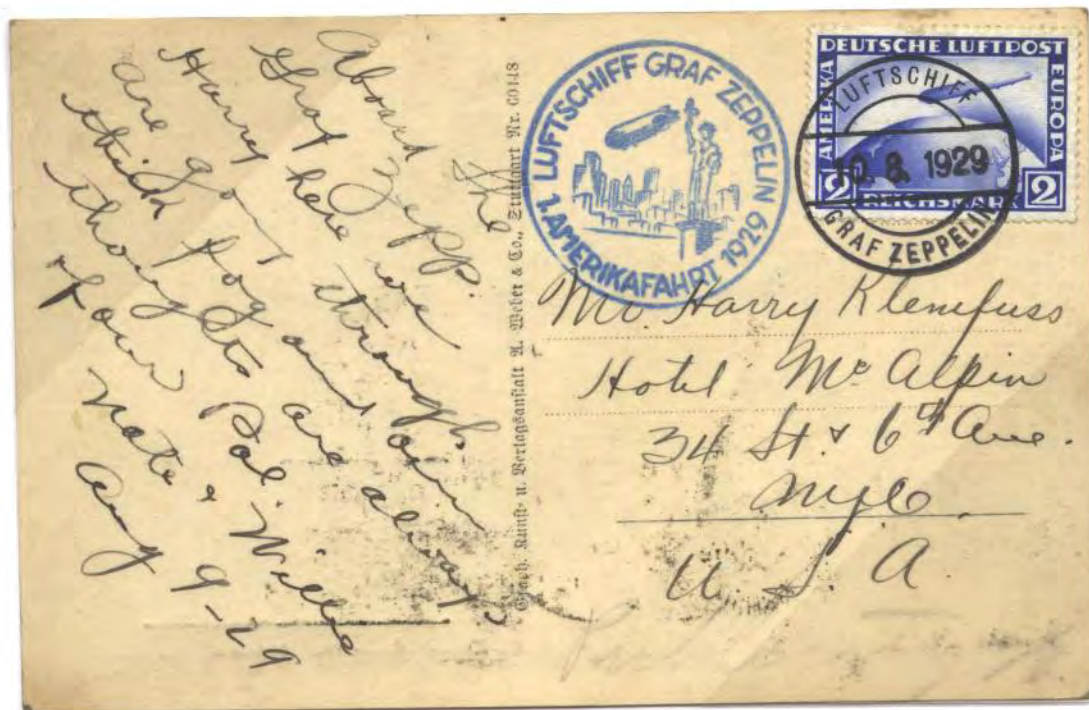 Aboard The
Graf Zepp.
Harry here we
are goin' through
thick fog and our
thoughts are always
of our Pal.
Nate & Willie
Aug 9-29
Graph. Kunst- u. Verlagsanstalt A. Weber & Co., Stuttgart Nr. 60148
LUFTSCHIFF GRAF ZEPPELIN
1. AMERIKAFAHRT 1929
DEUTSCHE LUFTPOST
AMERIKA
EUROPA
2 REICHSMARK 2
LUFTSCHIFF
10.8.1929
GRAF ZEPPELIN
Mr. Harry Klemfuss
Hotel McAlpin
34 St & 6th Ave.
NYC
U.S.A